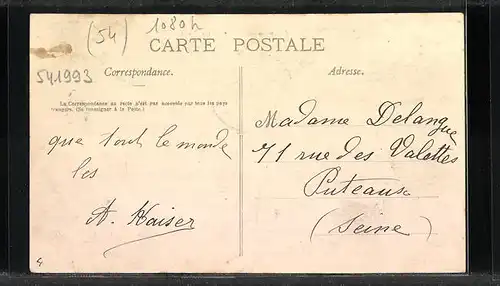 (54) 1080h
CARTE POSTALE
541993
Correspondance.
Adresse.
La Correspondance au recto n'est pas acceptée par tous les pays
étrangers. (Se renseigner à la Poste.)
que tout le monde
les
A. Kaiser
Madame Delangue
71 rue des Valettes
Puteaux
(Seine)